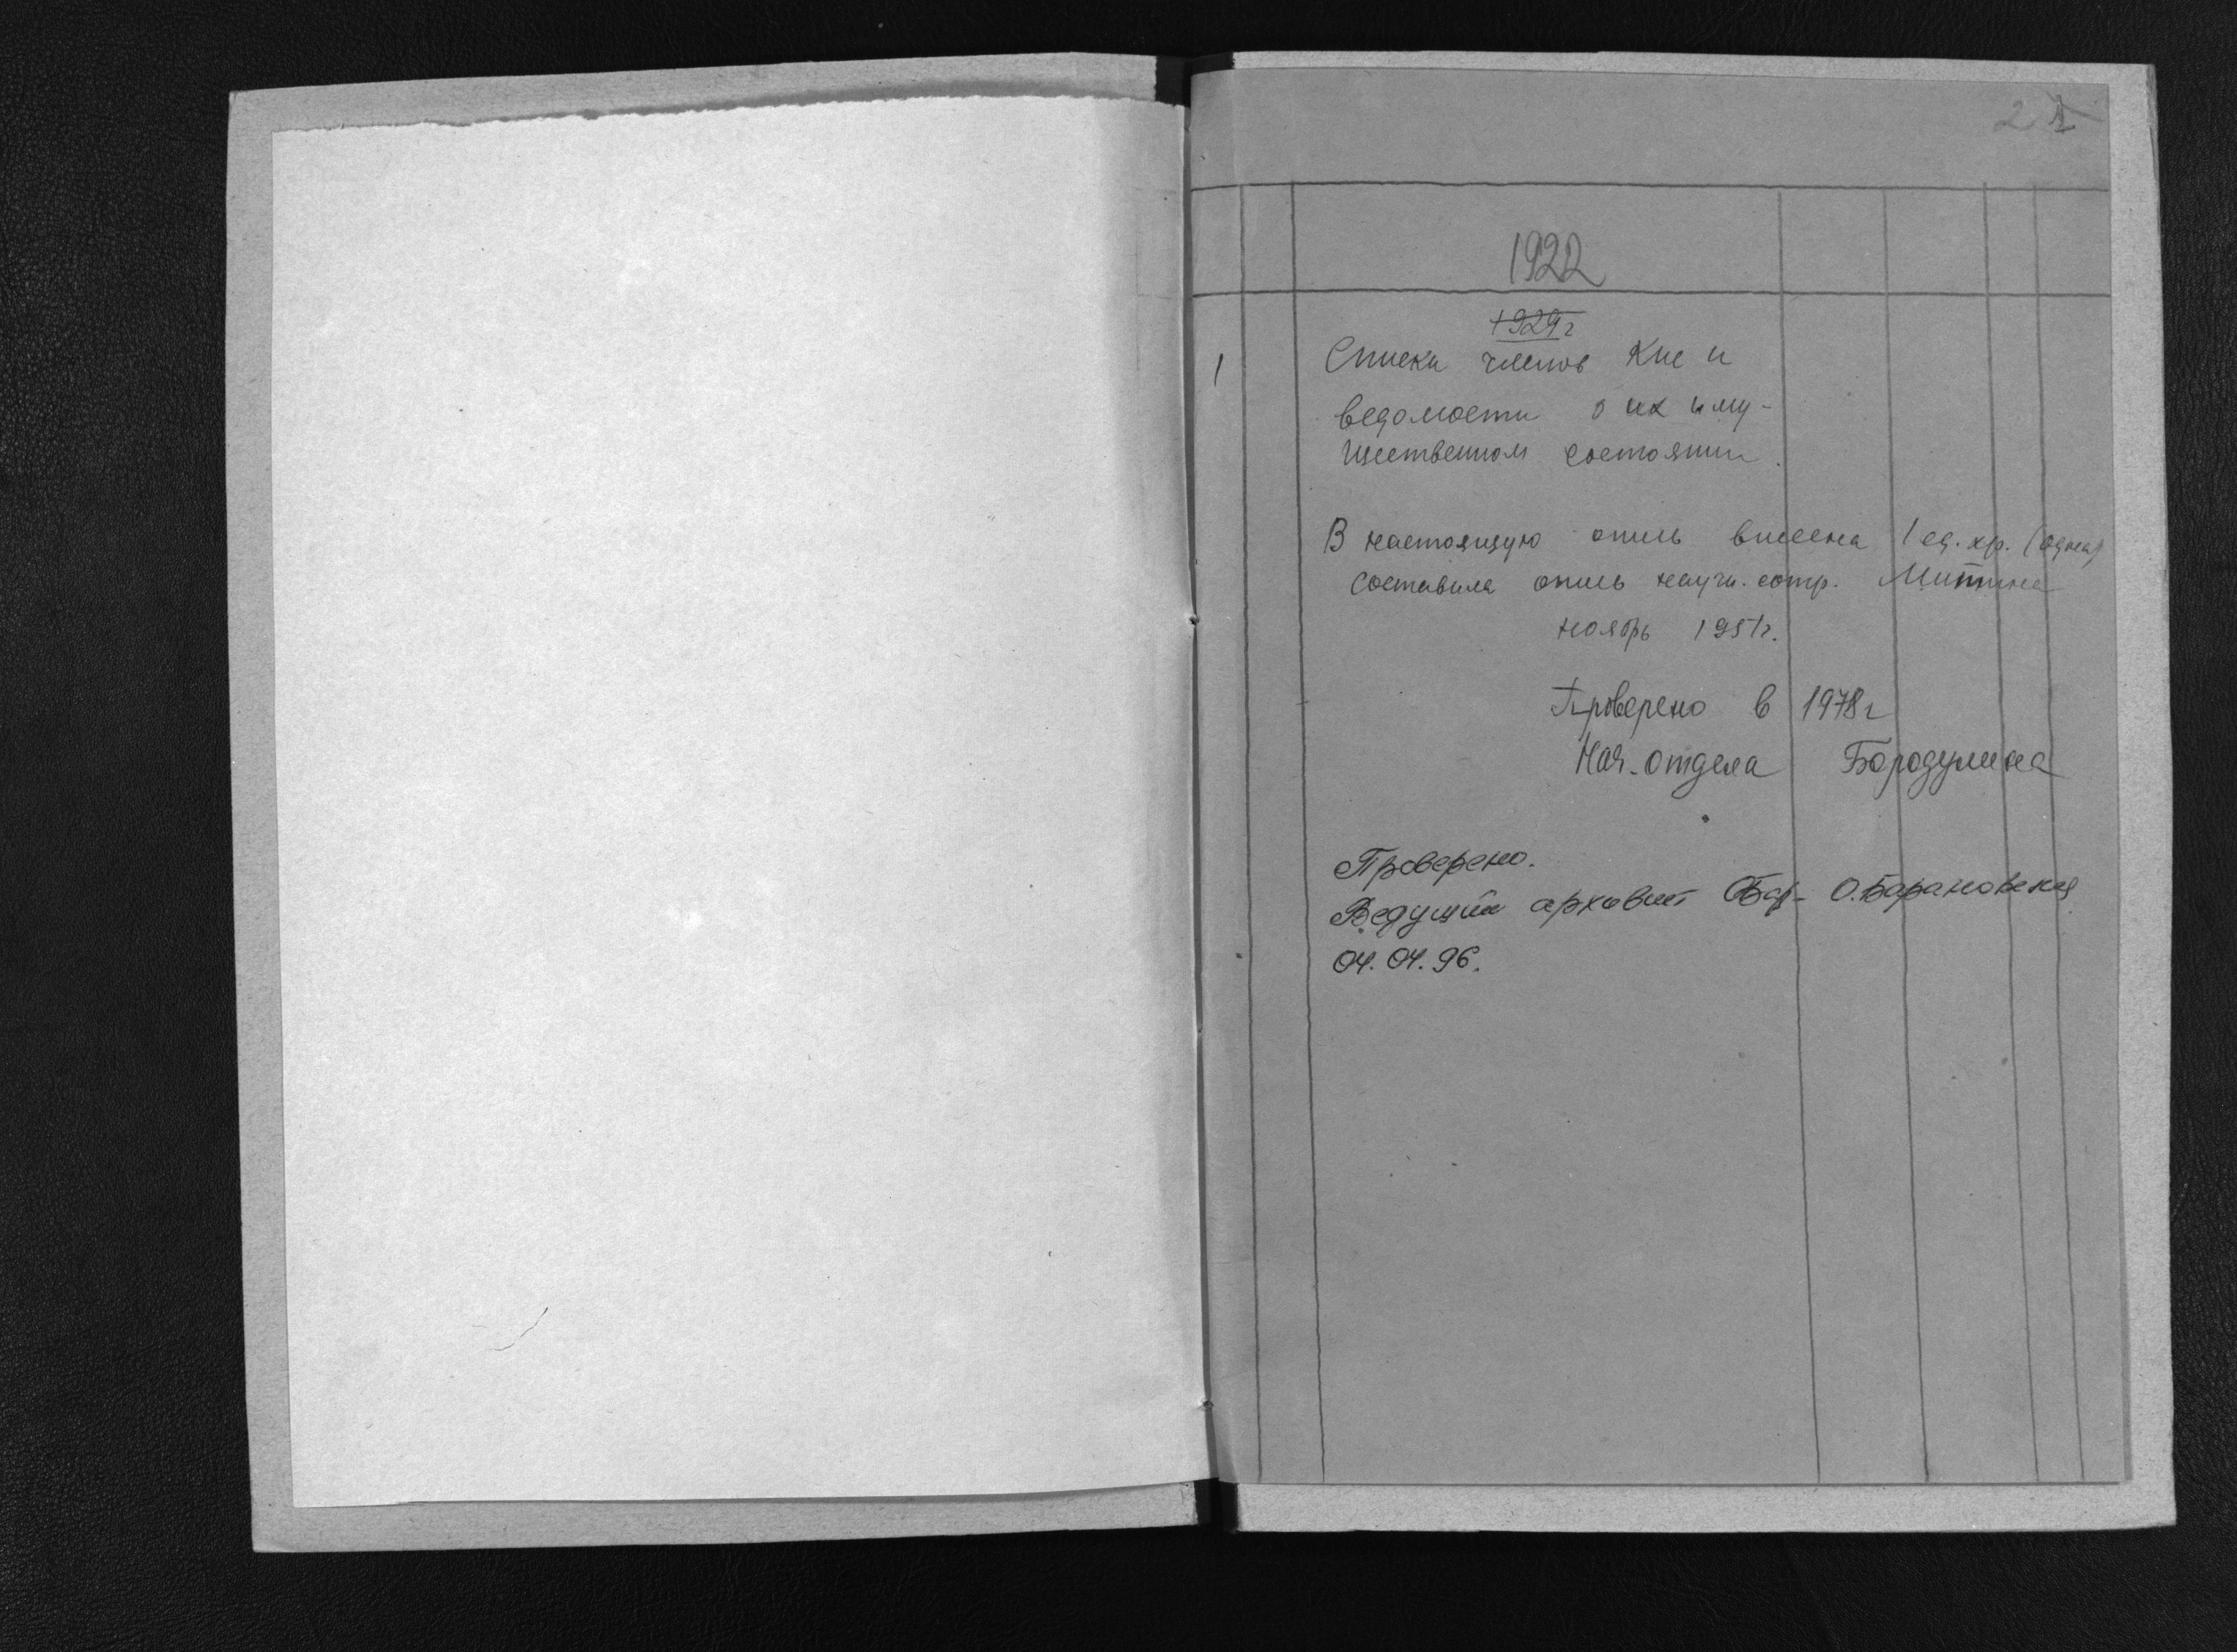 2
1922
1929г
1 Списки членов Кнс и
ведомости о их иму-
щественном состоянии.
В настоящую опись внесена 1 ед. хр. (одна)
Составила опись научн. сотр. Митина
ноябрь 1951г.
Проверено в 1978г
Нач. отдела Бородулина
Проверено.
Ведущий архивист Бар- О.Барановская
04.04.96.